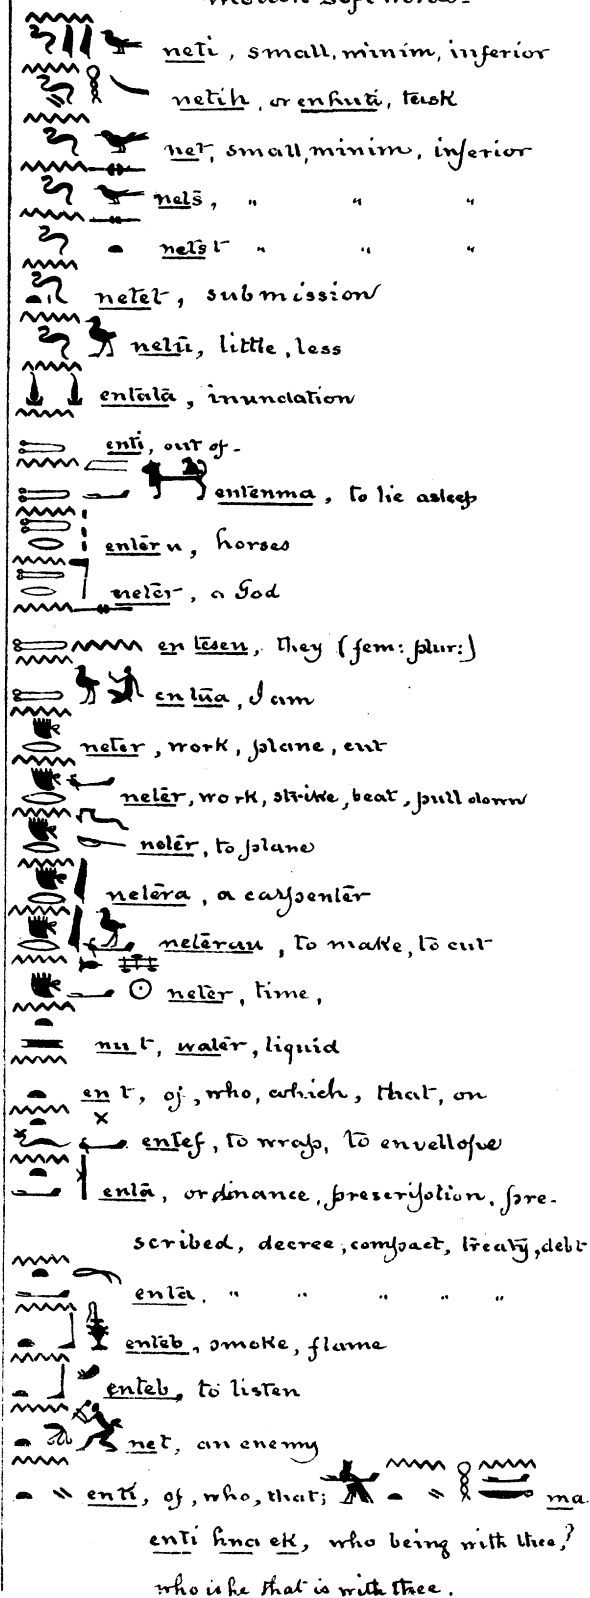 neti, small, minim, inferior
netih, or enhuti, task
net, small, minim, inferior
nets, " " "
netst " " "
netet, submission
netu, little, less
entata, inundation
enti, out of -
entenma, to lie asleep
enteru, horses
neter, a God
en tesen, they (fem: plur:)
en tua, I am
neter, work, plane, cut
neter, work, strike, beat, pull down
neter, to plane
netera, a carpenter
neterau, to make, to cut
neter, time,
nu t, water, liquid
en t, of, who, which, that, on
entef, to wrap, to envellope
enta, ordinance, prescription, pre-
scribed, decree, compact, treaty, debt
enta. " " " " "
enteb, smoke, flame
enteb, to listen
net, an enemy
enti, of, who, that; ma
enti hna ek, who being with thee,?
who is he that is with thee.